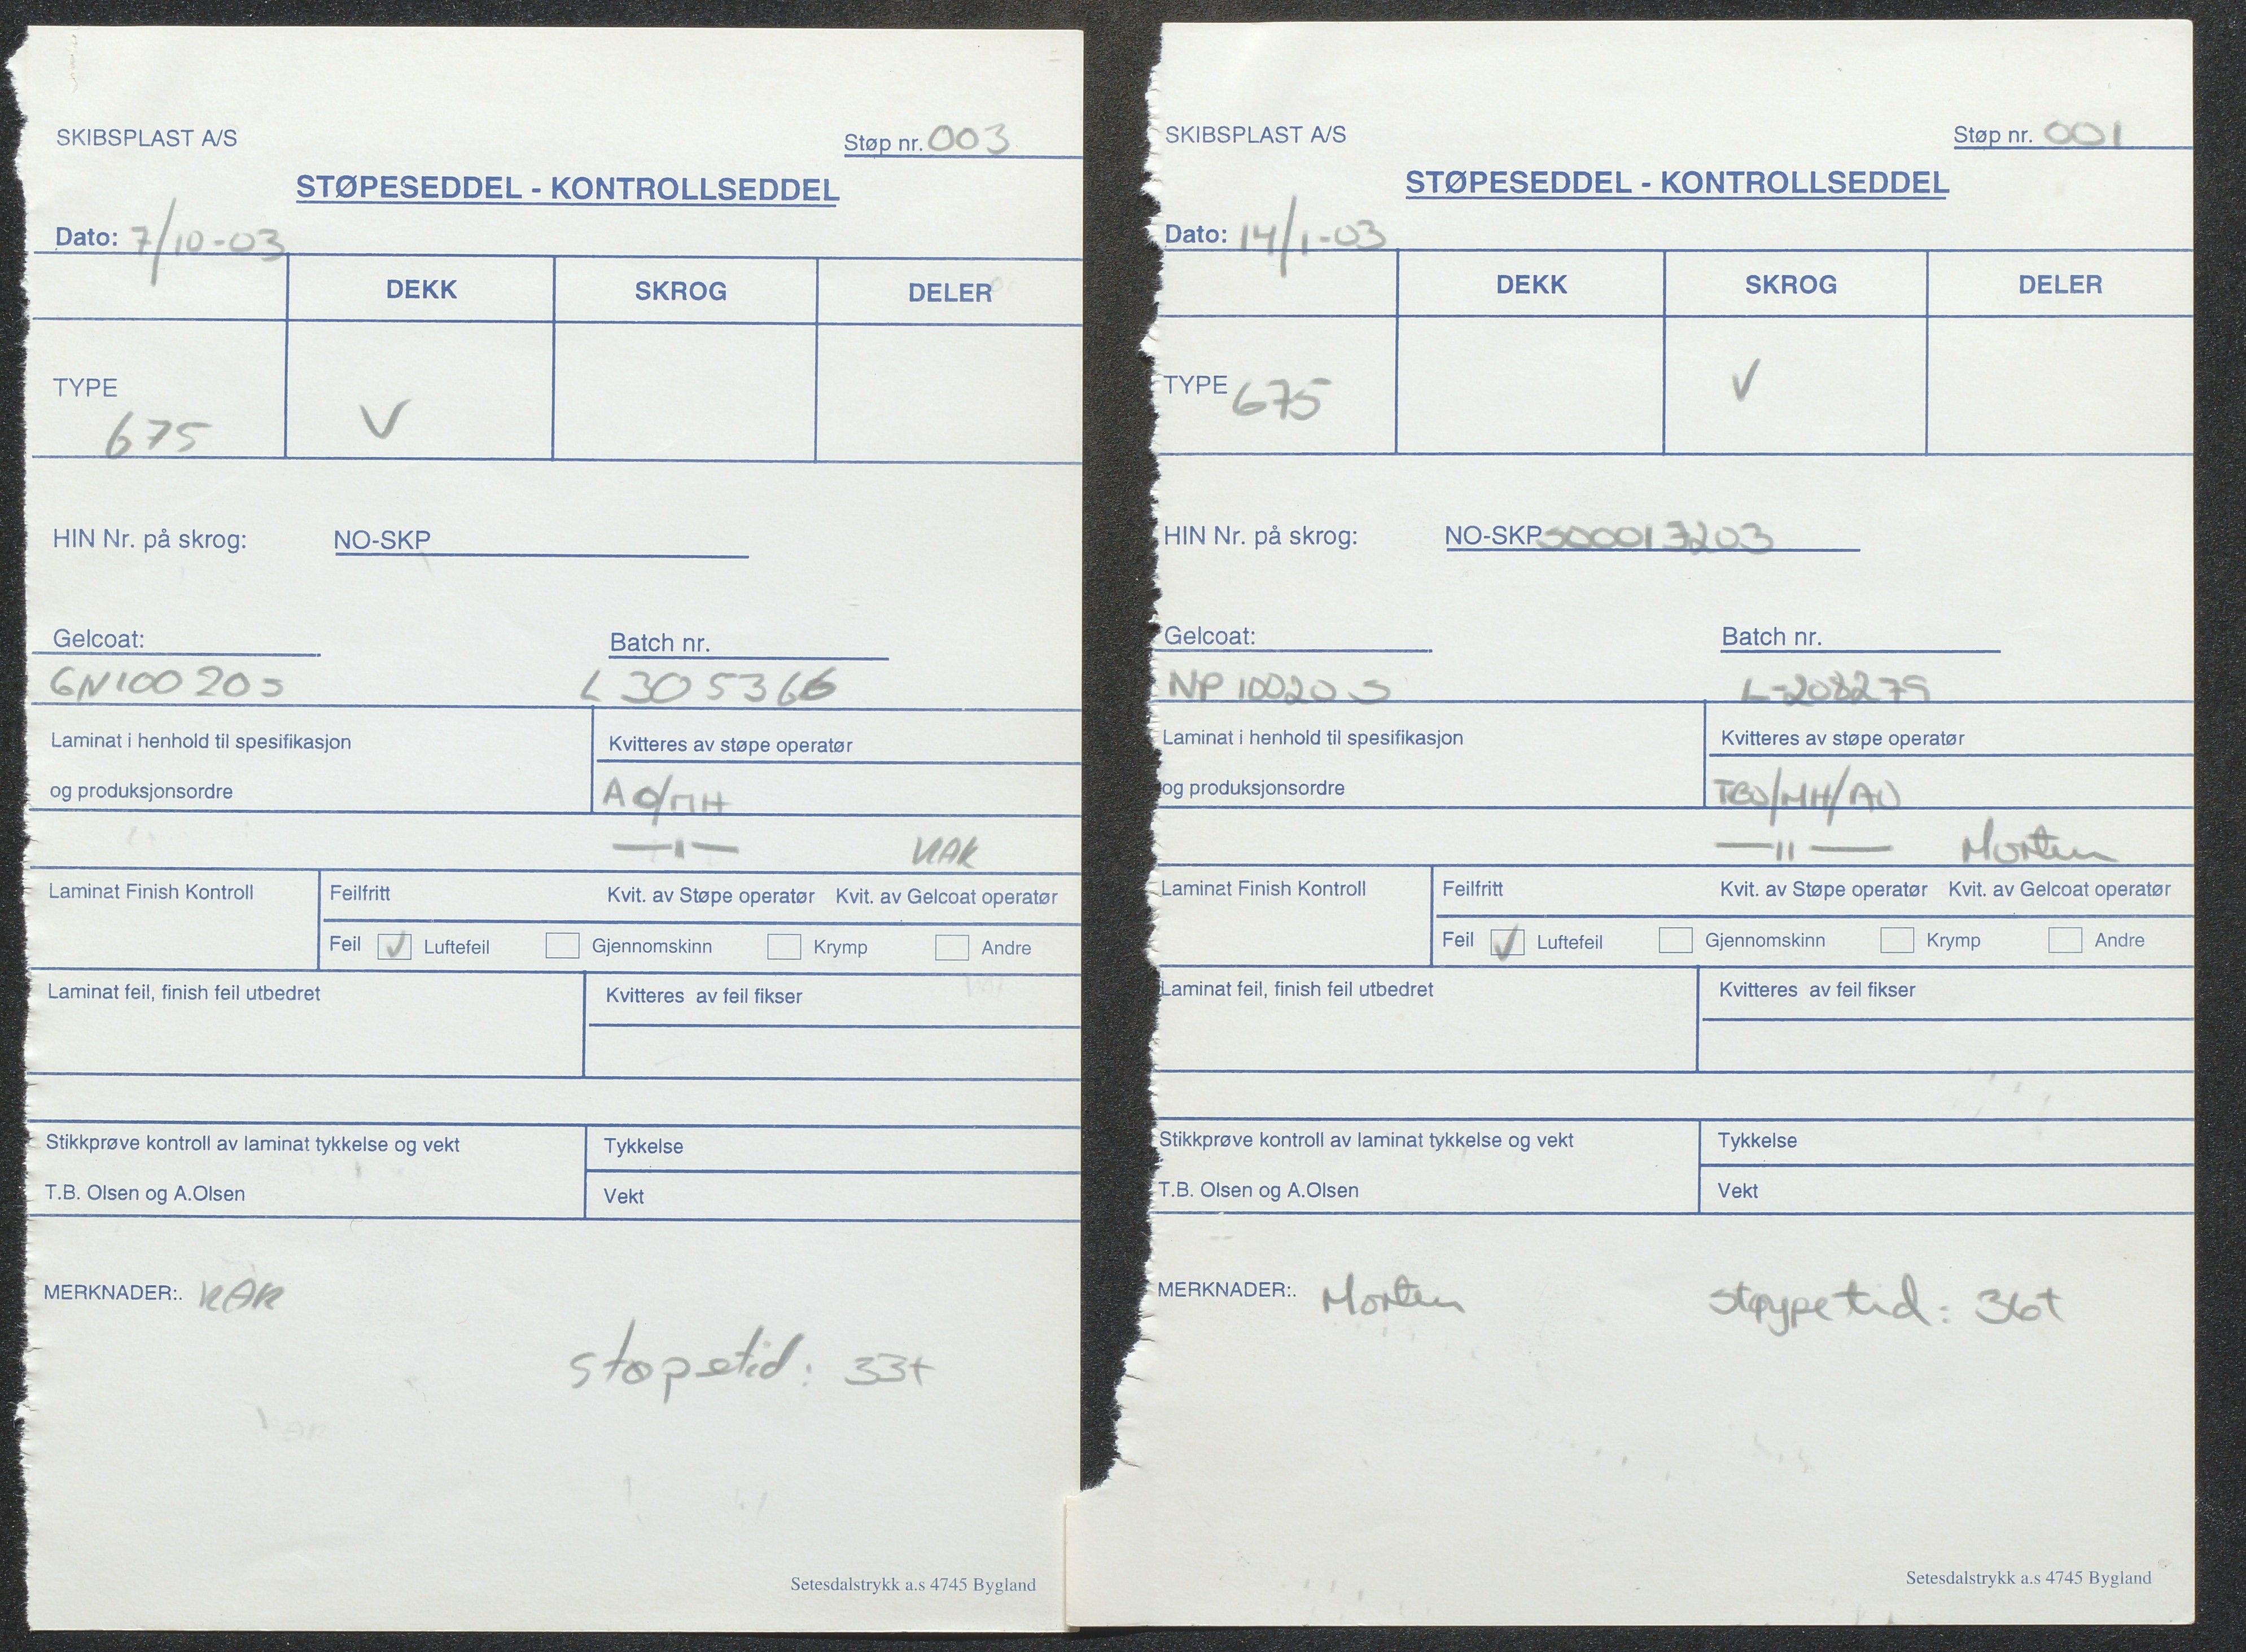 SKIBSPLAST A/S
Støp nr. 003
STØPESEDDEL - KONTROLLSEDDEL
Dato: 7/10-03
DEKK SKROG DELER
TYPE
675 V
HIN Nr. på skrog: NO-SKP
Gelcoat: Batch nr.
GN10020S L305366
Laminat i henhold til spesifikasjon Kvitteres av støpe operatør
og produksjonsordre AO/MH
—"— KAK
Laminat Finish Kontroll Feilfritt Kvit. av Støpe operatør Kvit. av Gelcoat operatør
Feil ✓ Luftefeil Gjennomskinn Krymp Andre
Laminat feil, finish feil utbedret Kvitteres av feil fikser
Stikkprøve kontroll av laminat tykkelse og vekt Tykkelse
T.B. Olsen og A.Olsen Vekt
MERKNADER:. KAK
støpetid: 33t
Setesdalstrykk a.s 4745 Bygland
SKIBSPLAST A/S
Støp nr. 001
STØPESEDDEL - KONTROLLSEDDEL
Dato: 14/1-03
DEKK SKROG DELER
TYPE 675 V
HIN Nr. på skrog: NO-SKP
Gelcoat: Batch nr.
NP10020S L-208279
Laminat i henhold til spesifikasjon Kvitteres av støpe operatør
og produksjonsordre TBO/MH/AO
—"— Morten
Laminat Finish Kontroll Feilfritt Kvit. av Støpe operatør Kvit. av Gelcoat operatør
Feil ✓ Luftefeil Gjennomskinn Krymp Andre
Laminat feil, finish feil utbedret Kvitteres av feil fikser
Stikkprøve kontroll av laminat tykkelse og vekt Tykkelse
T.B. Olsen og A.Olsen Vekt
MERKNADER:. Morten støypetid: 36t
Setesdalstrykk a.s 4745 Bygland